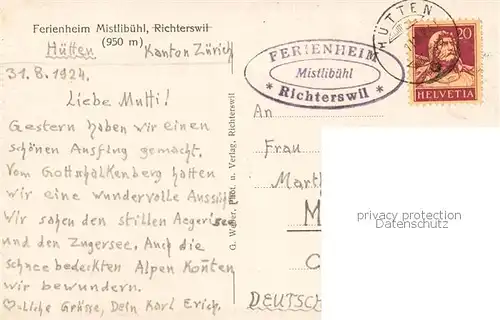 Ferienheim Mistlibühl, Richterswil
(950 m)
Hütten Kanton Zürich
31.8.1924.
Liebe Mutti!
Gestern haben wir einen
schönen Ausflug gemacht.
Vom Gottschalkenberg hatten
wir eine wundervolle Aussicht
Wir sahen den stillen Aegerisee
und den Zugersee. Auch die
schneebedeckten Alpen konnten
wir bewundern.
♡liche Grüsse, Dein Karl Erich.
G. Weber, Phot. u. Verlag, Richterswil
FERIENHEIM
Mistlibühl
* Richterswil *
HÜTTEN
20
HELVETIA
An
Frau
Marth
M
C
DEUTSCH
privacy protection
Datenschutz